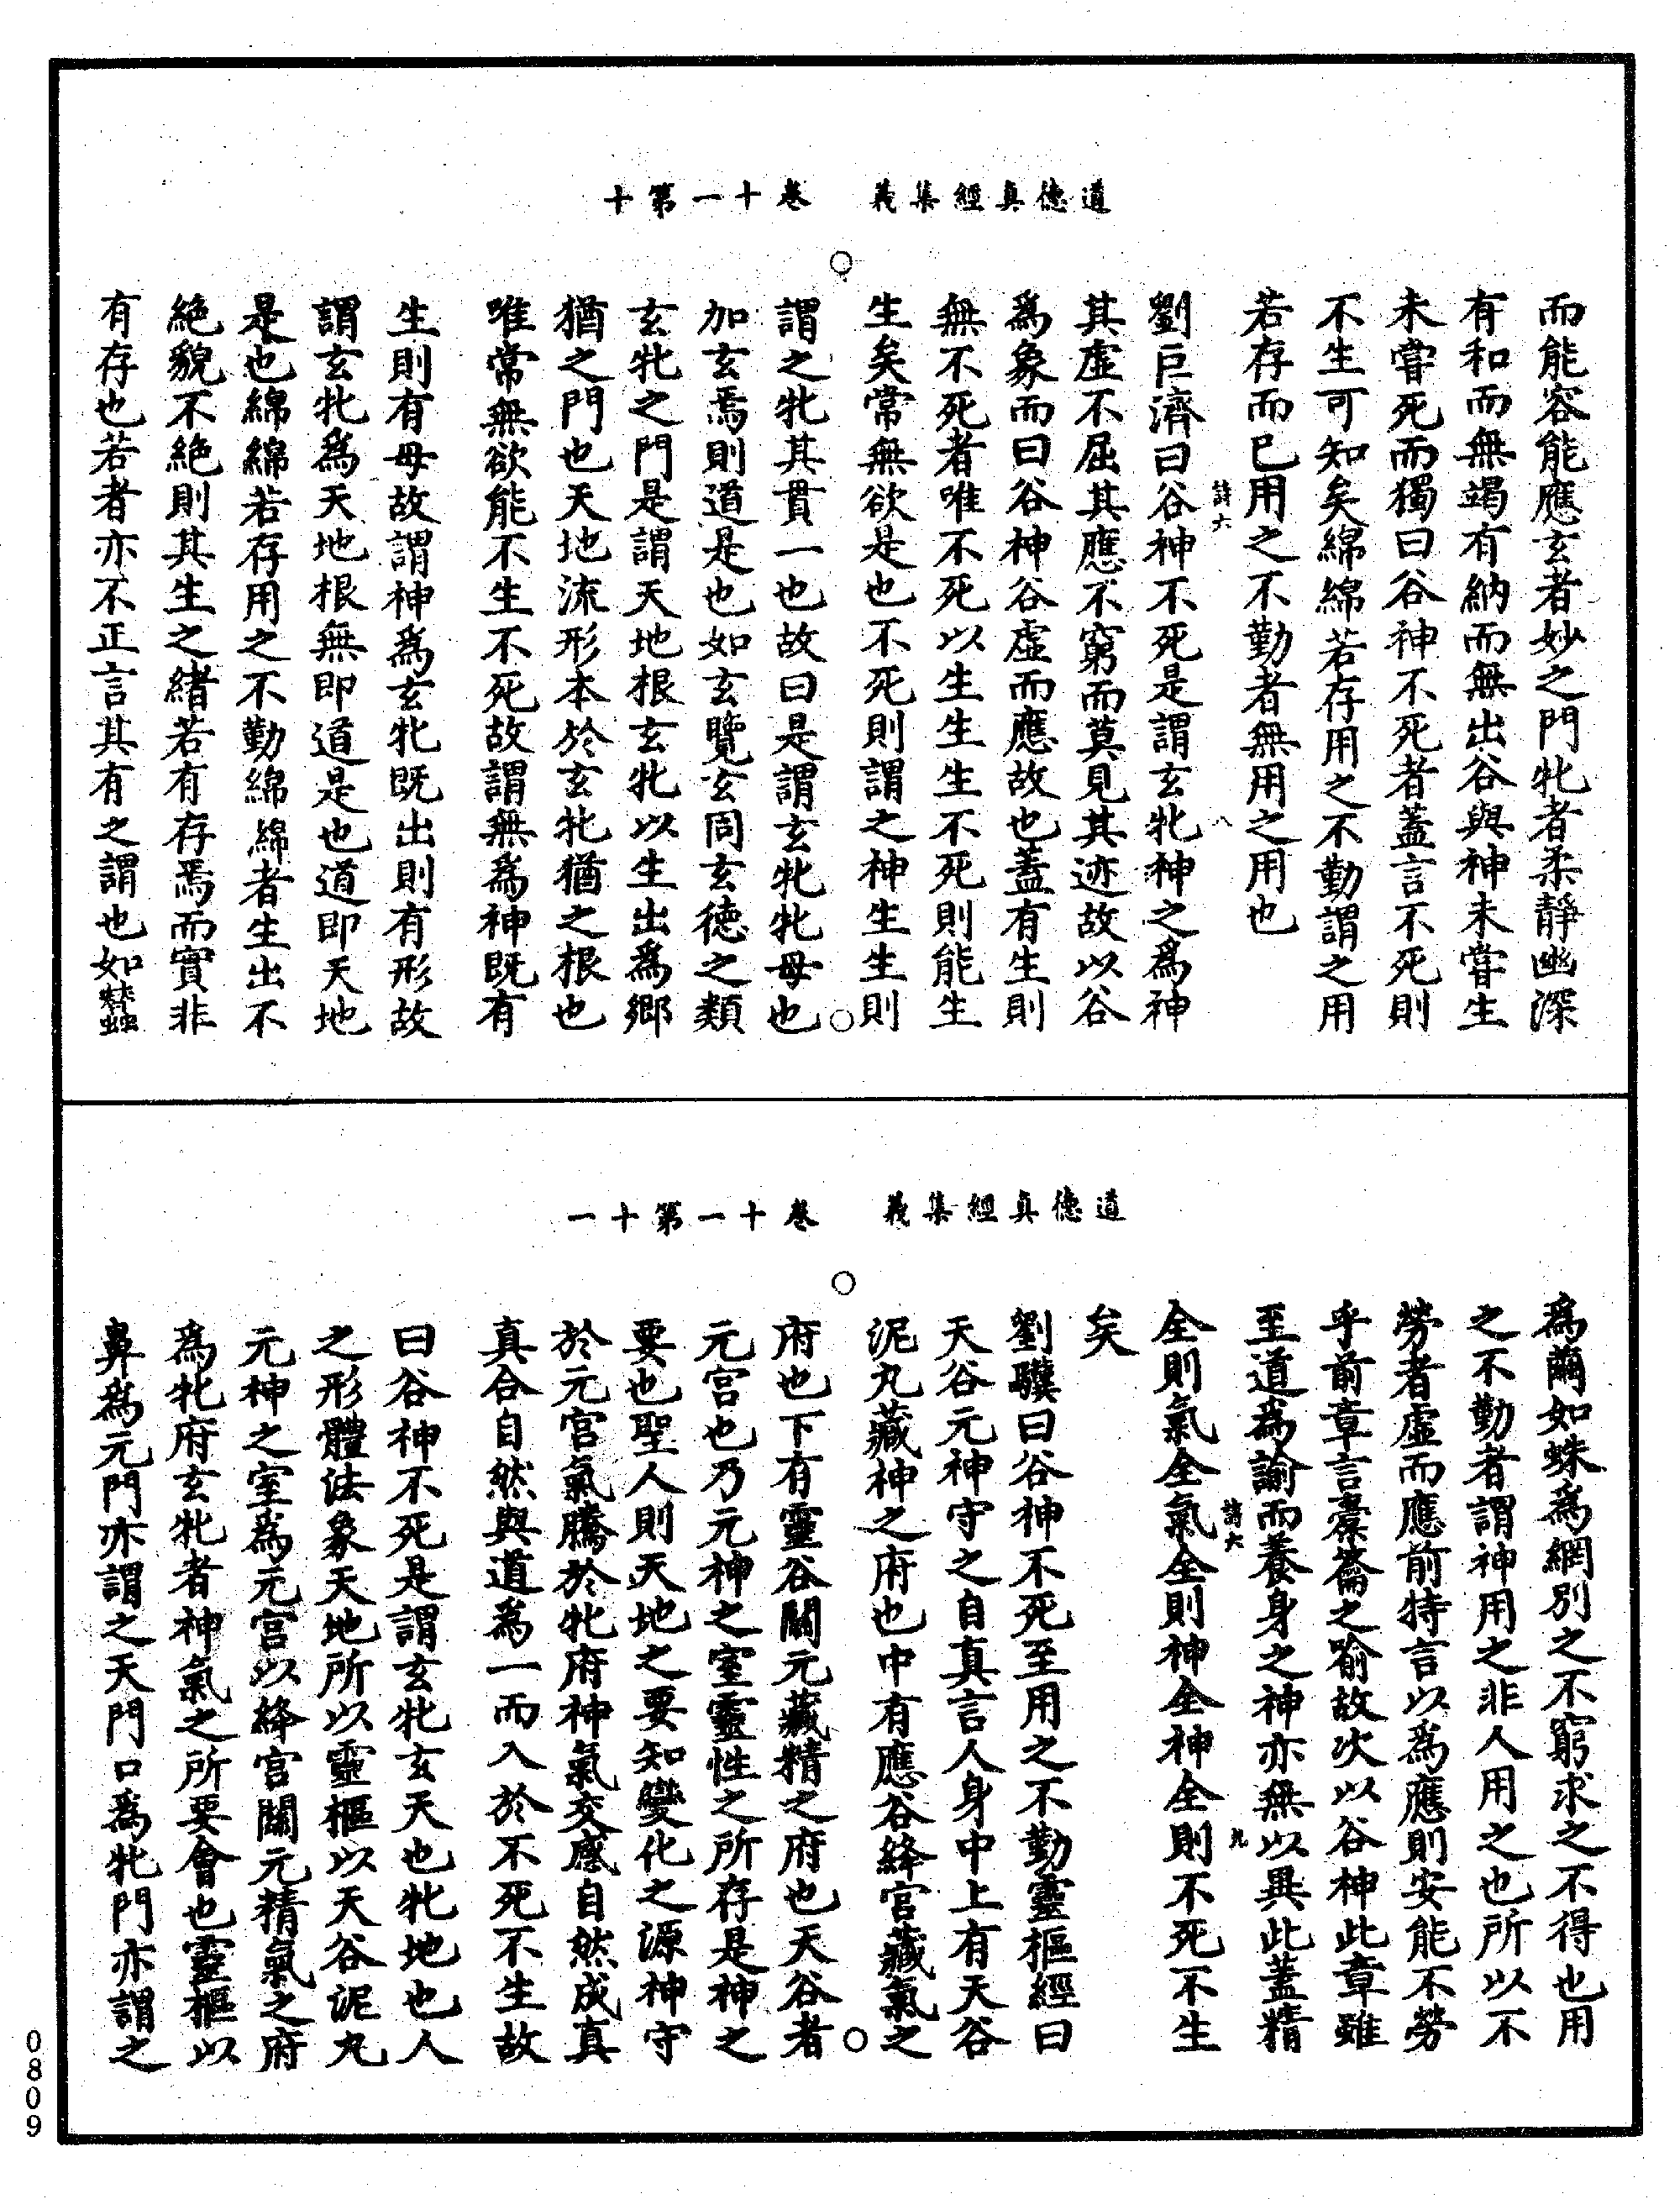 道德真經集義　卷十一第十
而能容能應玄者妙之門牝者柔靜幽深
有和而無竭有納而無出谷與神未甞生
未甞死而獨曰谷神不死者蓋言不死則
不生可知矣綿綿若存用之不勤謂之用
若存而已用之不勤者無用之用也
詩六　八
劉巨濟曰谷神不死是謂玄牝神之爲神
其虛不屈其應不窮而莫見其迹故以谷
爲象而曰谷神谷虛而應故也蓋有生則
無不死者唯不死以生生生不死則能生
生矣常無欲是也不死則謂之神生生則
謂之牝其貫一也故曰是謂玄牝牝母也
加玄焉則道是也如玄覽玄同玄德之類
玄牝之門是謂天地根玄牝以生出爲鄉
猶之門也天地流形本於玄牝猶之根也
唯常無欲能不生不死故謂無爲神既有
生則有母故謂神爲玄牝既出則有形故
謂玄牝爲天地根無即道是也道即天地
是也綿綿若存用之不勤綿綿者生出不
絶貌不絶則其生之緒若有存焉而實非
有存也若者亦不正言其有之謂也如蠶
道德真經集義　卷十一第十一
爲繭如蛛爲網別之不窮求之不得也用
之不勤者謂神用之非人用之也所以不
勞者虛而應前特言以爲應則安能不勞
乎前章言橐籥之喻故次以谷神此章雖
至道爲諭而養身之神亦無以異此蓋精
詩六　九
全則氣全氣全則神全神全則不死不生
矣
劉驥曰谷神不死至用之不勤靈樞經曰
天谷元神守之自真言人身中上有天谷
泥丸藏神之府也中有應谷絳宮藏氣之
府也下有靈谷關元藏精之府也天谷者
元宮也乃元神之室靈性之所存是神之
要也聖人則天地之要知變化之源神守
於元宮氣騰於牝府神氣交感自然成真
真合自然與道爲一而入於不死不生故
曰谷神不死是謂玄牝玄天也牝地也人
之形體法象天地所以靈樞以天谷泥丸
元神之室爲元宮以絳宮關元精氣之府
爲牝府玄牝者神氣之所要會也靈樞以
鼻爲元門亦謂之天門口爲牝門亦謂之
0809